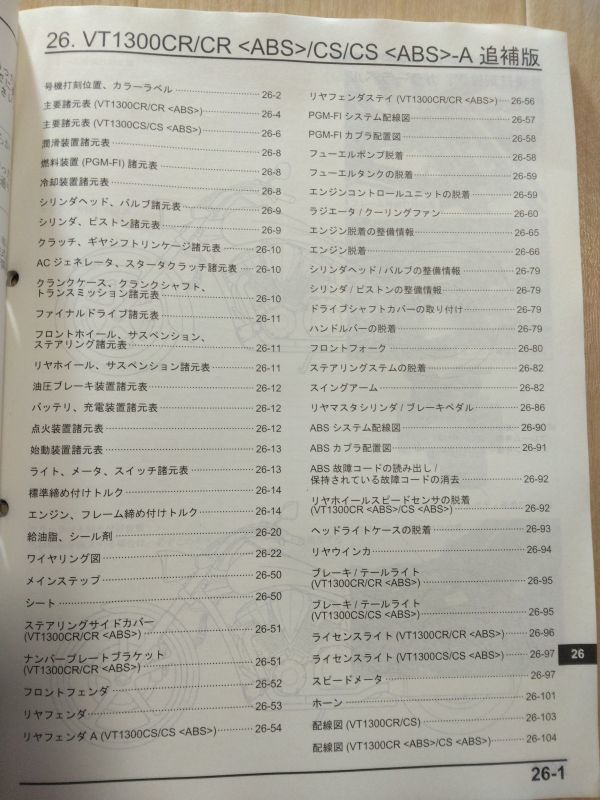 26. VT1300CR/CR <ABS>/CS/CS <ABS>-A 追補版
号機打刻位置、カラーラベル 26-2
主要諸元表 (VT1300CR/CR <ABS>) 26-4
主要諸元表 (VT1300CS/CS <ABS>) 26-6
潤滑装置諸元表 26-8
燃料装置 (PGM-FI) 諸元表 26-8
冷却装置諸元表 26-8
シリンダヘッド、バルブ諸元表 26-9
シリンダ、ピストン諸元表 26-9
クラッチ、ギヤシフトリンケージ諸元表 26-10
AC ジェネレータ、スタータクラッチ諸元表 26-10
クランクケース、クランクシャフト、
トランスミッション諸元表 26-10
ファイナルドライブ諸元表 26-11
フロントホイール、サスペンション、
ステアリング諸元表 26-11
リヤホイール、サスペンション諸元表 26-11
油圧ブレーキ装置諸元表 26-12
バッテリ、充電装置諸元表 26-12
点火装置諸元表 26-12
始動装置諸元表 26-13
ライト、メータ、スイッチ諸元表 26-13
標準締め付けトルク 26-14
エンジン、フレーム締め付けトルク 26-14
給油脂、シール剤 26-20
ワイヤリング図 26-22
メインステップ 26-50
シート 26-50
ステアリングサイドカバー
(VT1300CR/CR <ABS>) 26-51
ナンバープレートブラケット
(VT1300CR/CR <ABS>) 26-51
フロントフェンダ 26-52
リヤフェンダ 26-53
リヤフェンダ A (VT1300CS/CS <ABS>) 26-54
リヤフェンダステイ (VT1300CR/CR <ABS>) 26-56
PGM-FI システム配線図 26-57
PGM-FI カプラ配置図 26-58
フューエルポンプ脱着 26-58
フューエルタンクの脱着 26-59
エンジンコントロールユニットの脱着 26-59
ラジエータ / クーリングファン 26-60
エンジン脱着の整備情報 26-65
エンジン脱着 26-66
シリンダヘッド / バルブの整備情報 26-79
シリンダ / ピストンの整備情報 26-79
ドライブシャフトカバーの取り付け 26-79
ハンドルバーの脱着 26-79
フロントフォーク 26-80
ステアリングステムの脱着 26-82
スイングアーム 26-82
リヤマスタシリンダ / ブレーキペダル 26-86
ABS システム配線図 26-90
ABS カプラ配置図 26-91
ABS 故障コードの読み出し /
保持されている故障コードの消去 26-92
リヤホイールスピードセンサの脱着
(VT1300CR <ABS>/CS <ABS>) 26-92
ヘッドライトケースの脱着 26-93
リヤウインカ 26-94
ブレーキ / テールライト
(VT1300CR/CR <ABS>) 26-95
ブレーキ / テールライト
(VT1300CS/CS <ABS>) 26-95
ライセンスライト (VT1300CR/CR <ABS>) 26-96
ライセンスライト (VT1300CS/CS <ABS>) 26-97
スピードメータ 26-97
ホーン 26-101
配線図 (VT1300CR/CS) 26-103
配線図 (VT1300CR <ABS>/CS <ABS>) 26-104
26
26-1